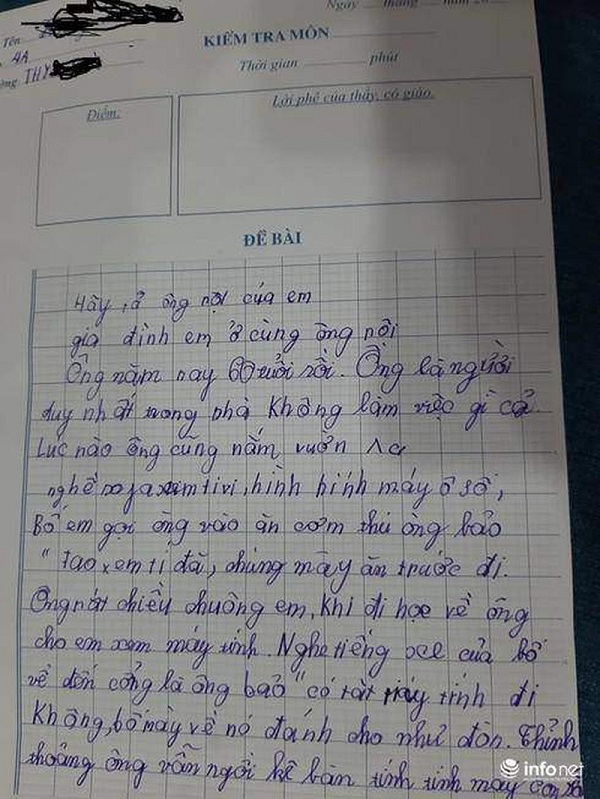 Ngày tháng năm 20
Tên
4A
KIỂM TRA MÔN
ường THY
Thời gian phút
Điểm:
Lời phê của thầy, cô giáo.
ĐỀ BÀI
Hãy tả ông nội của em
gia đình em ở cùng ông nội
Ông năm nay 60 tuổi rồi. Ông là người
duy nhất trong nhà không làm việc gì cả.
Lúc nào ông cũng nằm vườn ra
nghế xem tivi, hình bính máy ô số,
Bố em gọi ông vào ăn cơm thù ông bảo
"Tao xem tí đã, chúng mày ăn trước đi.
Ông rất chiều chuông em, khi đi học về ông
cho em xem máy tính. Nghe tiếng xe của bố
về đến cổng là ông bảo "có tắt máy tính đi
không, bố mày về nó đánh cho như đòn. Thỉnh
thoảng ông vẫn ngồi kê bàn tính tính mấy con
infonet